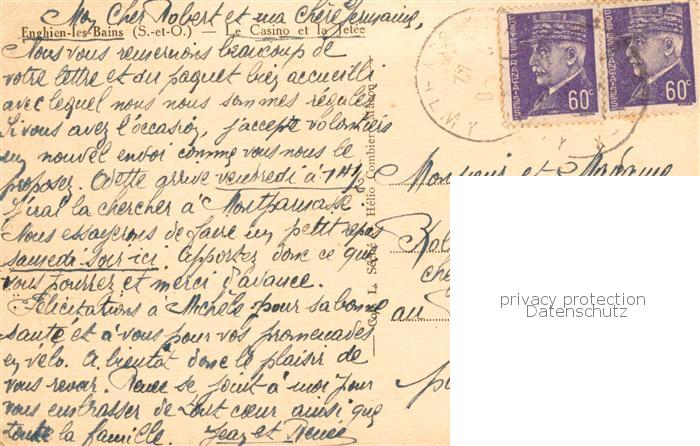 Mon Cher Robert et ma Chère Germaine,
Enghien-les-Bains (S.-et-O.) — Le Casino et la Jetée
Nous vous remercions beaucoup de
votre lettre et du paquet bien accueilli
avec lequel nous nous sommes régalés
Si vous avez l'occasion, j'accepte volontiers
un nouvel envoi comme vous nous le
proposez. Odette arrive vendredi à 14h
J'irai la chercher à Montparnasse.
Nous essayerons de faire un petit repas
samedi soir ici. Apportez donc ce que
vous pourrez et merci d'avance.
Félicitations à Michèle pour sa bonne
santé et à vous pour vos promenades
en vélo. A bientôt donc le plaisir de
vous revoir. Renée se joint à moi pour
vous embrasser de tout cœur ainsi que
toute la famille. Jean et Renée
Coll. L. Hélio Combier Macon
POSTES FRANÇAISES
60c
POSTES FRANÇAISES
60c
42
Monsieur et Madame
au
privacy protection
Datenschutz